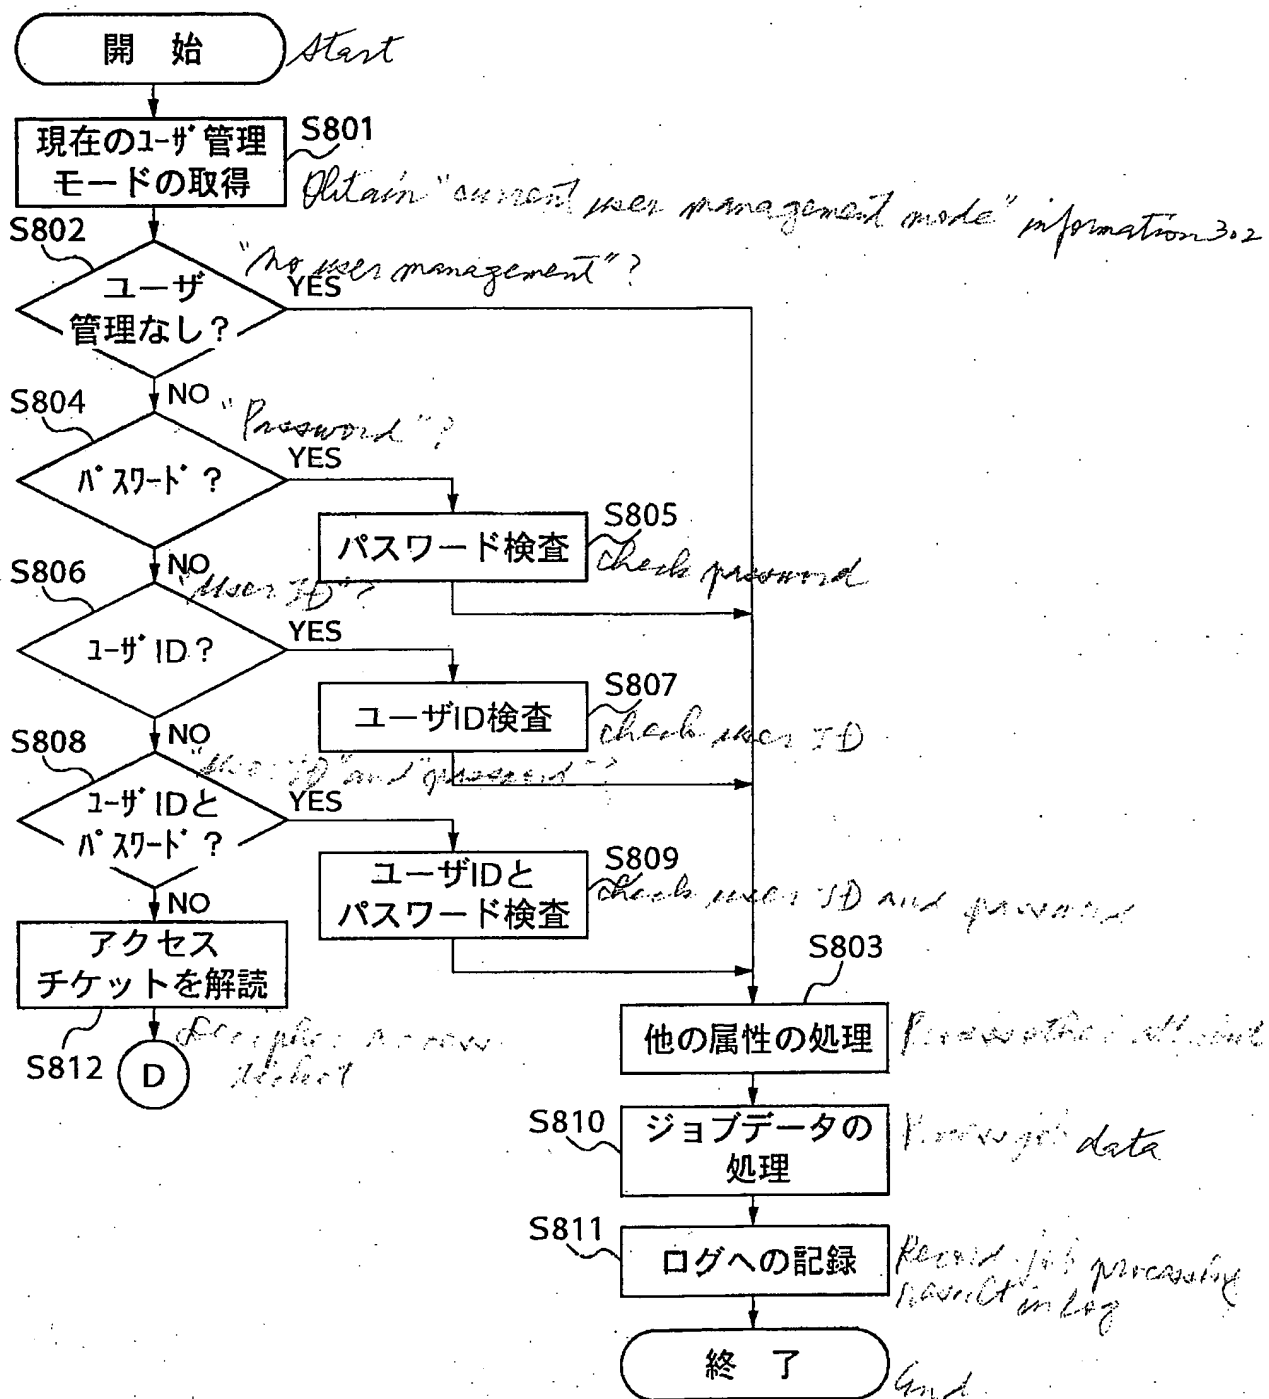 開 始
Start
現在のユーザ管理
モードの取得
S801
Obtain "current user management mode" information 302
S802
"No user management"?
YES
ユーザ
管理なし?
NO
S804
"Password"?
YES
パスワード?
S805
パスワード検査
check password
NO
S806
"User ID"?
YES
ユーザID?
S807
ユーザID検査
check user ID
NO
S808
"User ID" and "password"?
YES
ユーザIDと
パスワード?
S809
ユーザIDと
パスワード検査
check user ID and password
NO
アクセス
チケットを解読
S812
Decipher access
ticket
D
S803
他の属性の処理
Process other
S810
ジョブデータの
処理
Process job data
S811
ログへの記録
Record job processing
result in log
終 了
End